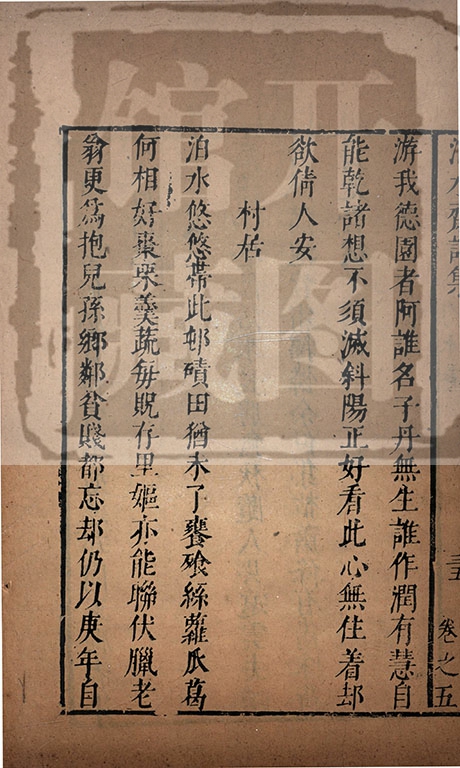 泊水齋詩集
卷之五
游我德園者阿誰名子丹無生誰作潤有慧自
能乾諸想不須滅斜陽正好看此心無住着却
欲倩人安
村居
泊水悠悠帶此邨磧田猶未了饔飧絲蘿瓜葛
何相好棗栗羮蔬每貺存里嫗亦能聯伏臘老
翁更爲抱兒孫鄉鄰貧賤都忘却仍以庚年自